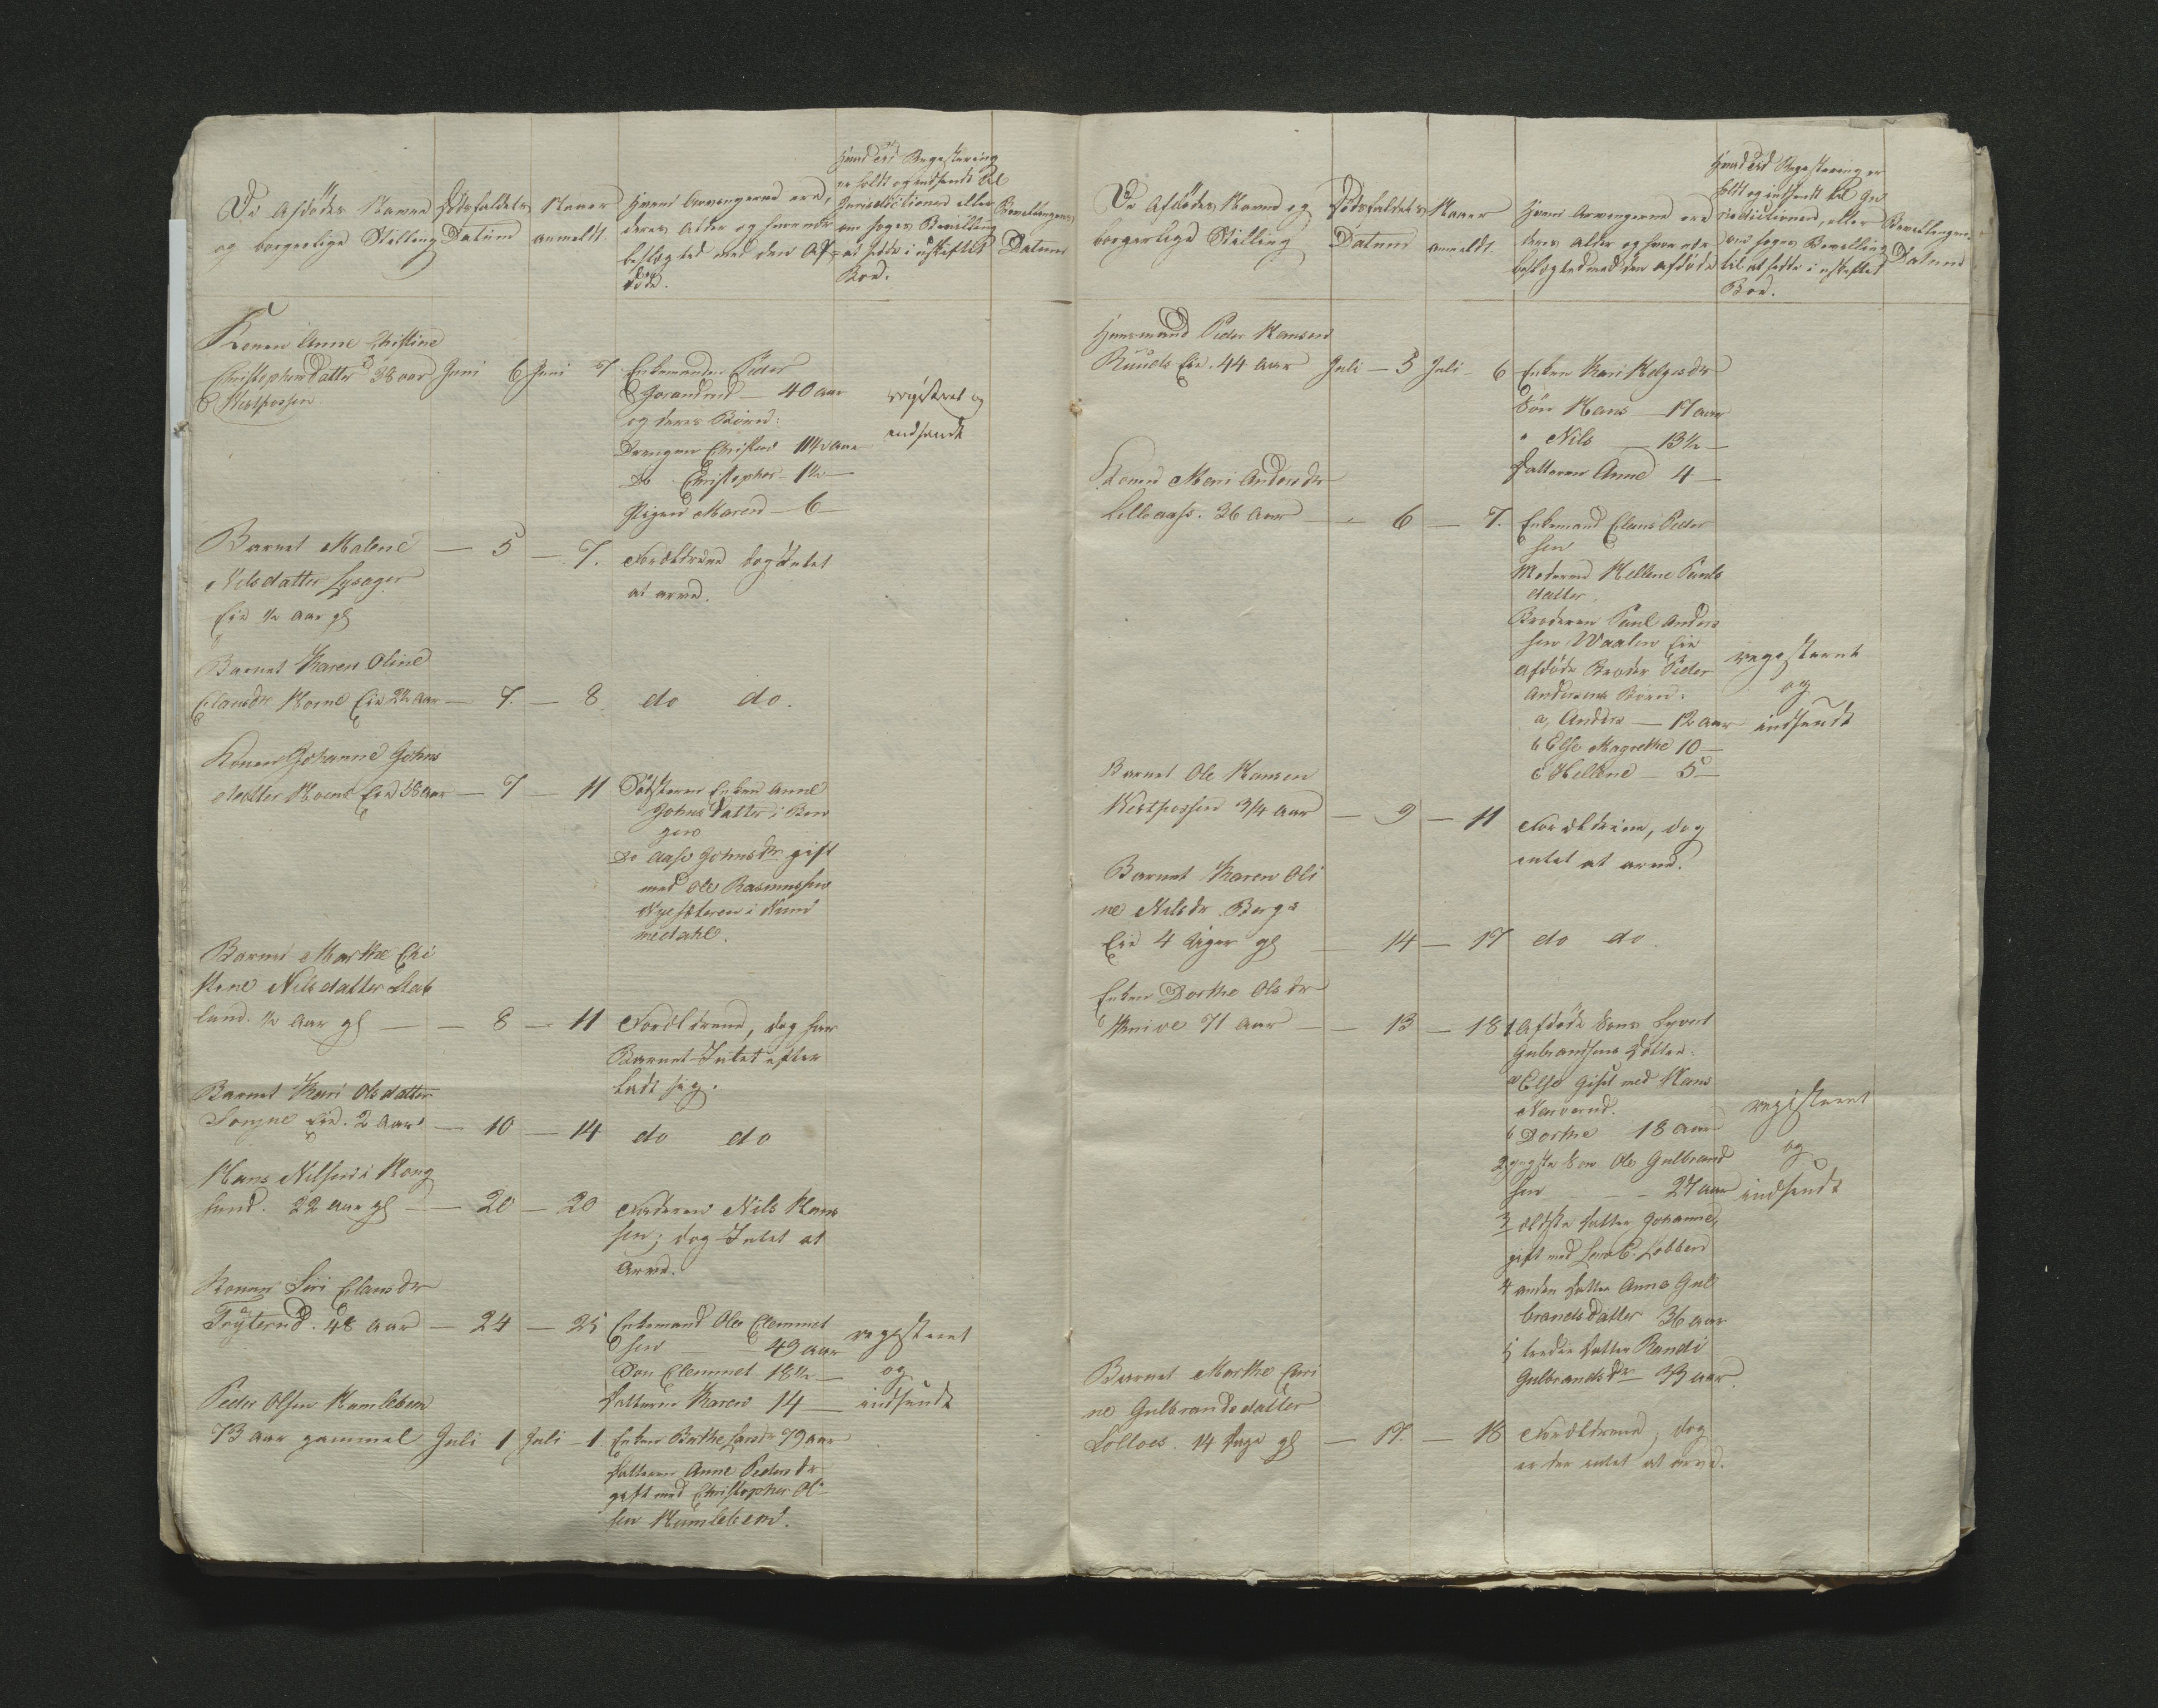 De Afdødes Navne
og borgerlige Stilling
Dødsfaldets
Datum
Naar
anmeldt.
Hvem Arvingerne ere,
deres Alder og hvor nær
beslægted med den Af-
døde.
Hvad Registering
er holdt og indsendt til
Jurisdictionen eller
om søges Bevilling
at sidde i uskiftet
Boe.
Bevillingens
Datum
Konen Anne Kistine
Christophersdatter 38 aar Juni 6 Juni 7 Enkemanden Peder
Westfossen
— 40 aar
og deres Børn:
Drengen Christen 11½ aar
Do Christopher - 1½ —
Pigen Maren — 6 —
registeret og
indsendt
Barnet Malene — 5 — 7. Forældrene dog Intet
Nilsdatter
at arve.
Eie ½ Aar gl
Barnet Karen Oline
Clausdr Horne Eie 2½ Aar — 7. — 8 do do.
Konen Johanne Johns
datter Eie 58 aar — 7 — 11 Søsteren Enken Anne
Johns Datter i
Do Aase Johnsdr gift
med Ole Rasmussen
i Num
medahl.
Barnet Marthe Chri
stene Nilsdatter Stab
land. ½ Aar gl — — 8 — 11 Forældrene, dog har
Barnet Intet efter
ladt sig.
Barnet Kari Olsdatter
Eie. 2 Aar — 10 — 14 do do
Hans Nilsen i Krog
sund. 22 aar gl — — 20 — 20 Faderen Nils Hans
sen; dog Intet at
Arve.
Konen Siri Clausdr
48 aar — 24 — 25 Enkemand Ole Clemmet
sen — 49 aar
Søn Clemmet 18½ —
Datteren Karen 14 —
registeret
og
indsendt
Peder Olsen Hamlebroen
73 aar gammel Juli 1 Juli — 1. Enken Berthe Larsdr 79 aar
Datteren Anne Pedersdr
gift med Christopher Ol-
sen
De Afdødes Navne og
borgerlige Stilling
Dødsfaldets
Datum
Naar
anmeldt.
Hvem Arvingerne ere
deres Alder og hvor nær
beslægted med den Afdøde
Hvad Registering er
holdt og indsendt til Ju
risdictionen, eller
om søges Bevilling
til at sidde i uskiftet
Boe.
Bevillingens
Datum
Huusmand Peder Hansen
Ruuds Eie. 44 aar Juli — 5 Juli - 6 Enken Kari Helgesdr
Søn Hans — 17 aar
" Nils — 13½ —
Datteren Anne 4 —
Konen Mari Andersdr
Lilleaas. 36 Aar — - 6 — 7. Enkemand Claus Peder
sen
Moderen Hellene Pauls
datter.
Broderen Paul Anders
sen Waalen Eie
Afdøde Broder Peder
Andersens Børn:
a, Anders — 12 aar
b Else Magrethe 10 —
c Hellene — 5 —
registeret
og
indsendt
Barnet Ole Hansen
Westfossen 3/4 Aar — 9 — 11 Forældrene, dog
intet at arve.
Barnet Karen Oli
ne Nilsdr. Berg s
Eie 4 Uger gl — 14 — 17 do do.
Enken Dorthe Olsdr
Knive 71 aar — — 13 — 18 1 Afdøde Søns Syvert
Gulbrandsens Døttre:
a Else Gift med Hans
b Dorthe 18 aar
2 yngste Søn Ole Gulbrand
sen — — 27 aar
3 ældste Datter Johanne,
gift med
4 anden Datter Anne Gul
brandsdatter 36 aar
5 tredie Datter Randi
Gulbrandsdr 33 aar
registeret
og
indsendt
Barnet Marthe Kari
ne Gulbrandsdatter
14 Dage gl — 17. — 18 Forældrene; dog
er der intet at arve.